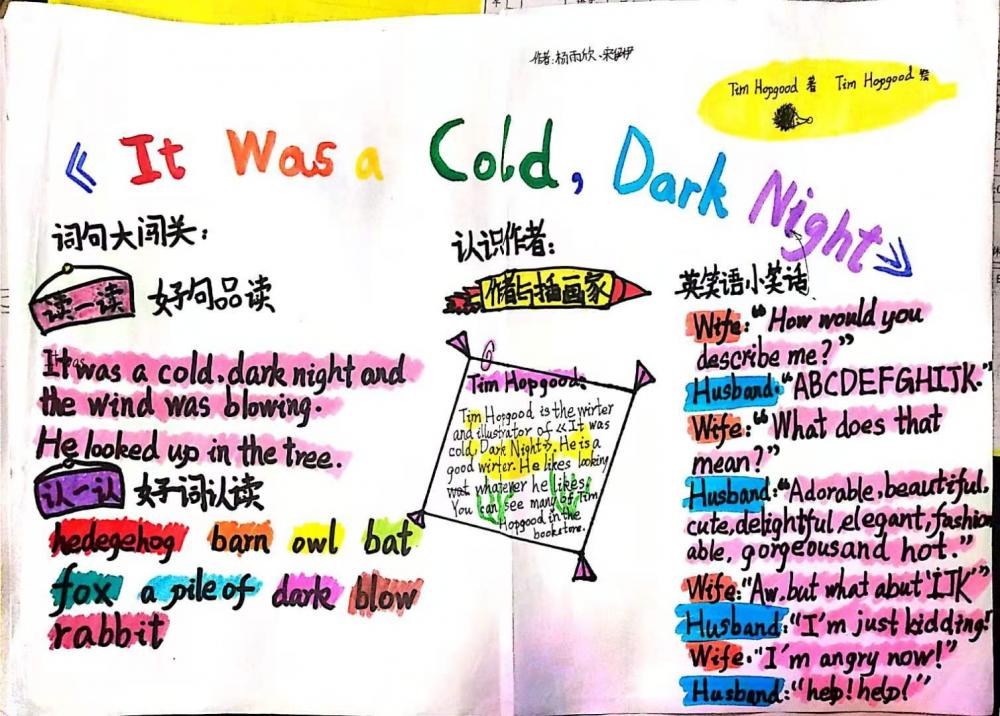 作者:杨雨欣、宋伊
Tim Hopgood 著 Tim Hopgood 绘
《It Was a Cold, Dark Night》
词句大闯关：
读一读 好句品读
It was a cold, dark night and
the wind was blowing.
He looked up in the tree.
认一认 好词认读
hedegehog barn owl bat
fox a pile of dark blow
rabbit
认识作者：
作者与插画家
Tim Hopgood:
Tim Hopgood is the wirter
and illustrator of 《It was
cold, Dark Night》. He is a
good wirter. He likes looking
whatever he likes.
You can see many of Tim
Hopgood in the
bookstore.
英笑语小笑话
Wife:"How would you
describe me?"
Husband:"ABCDEFGHIJK."
Wife:"What does that
mean?"
Husband:"Adorable, beautiful,
cute, delightful, elegant, fashion
able, gorgeous and hot."
Wife:"Aw, but what about 'IJK'"
Husband:"I'm just kidding!
Wife:"I'm angry now!"
Husband:"help! help!"